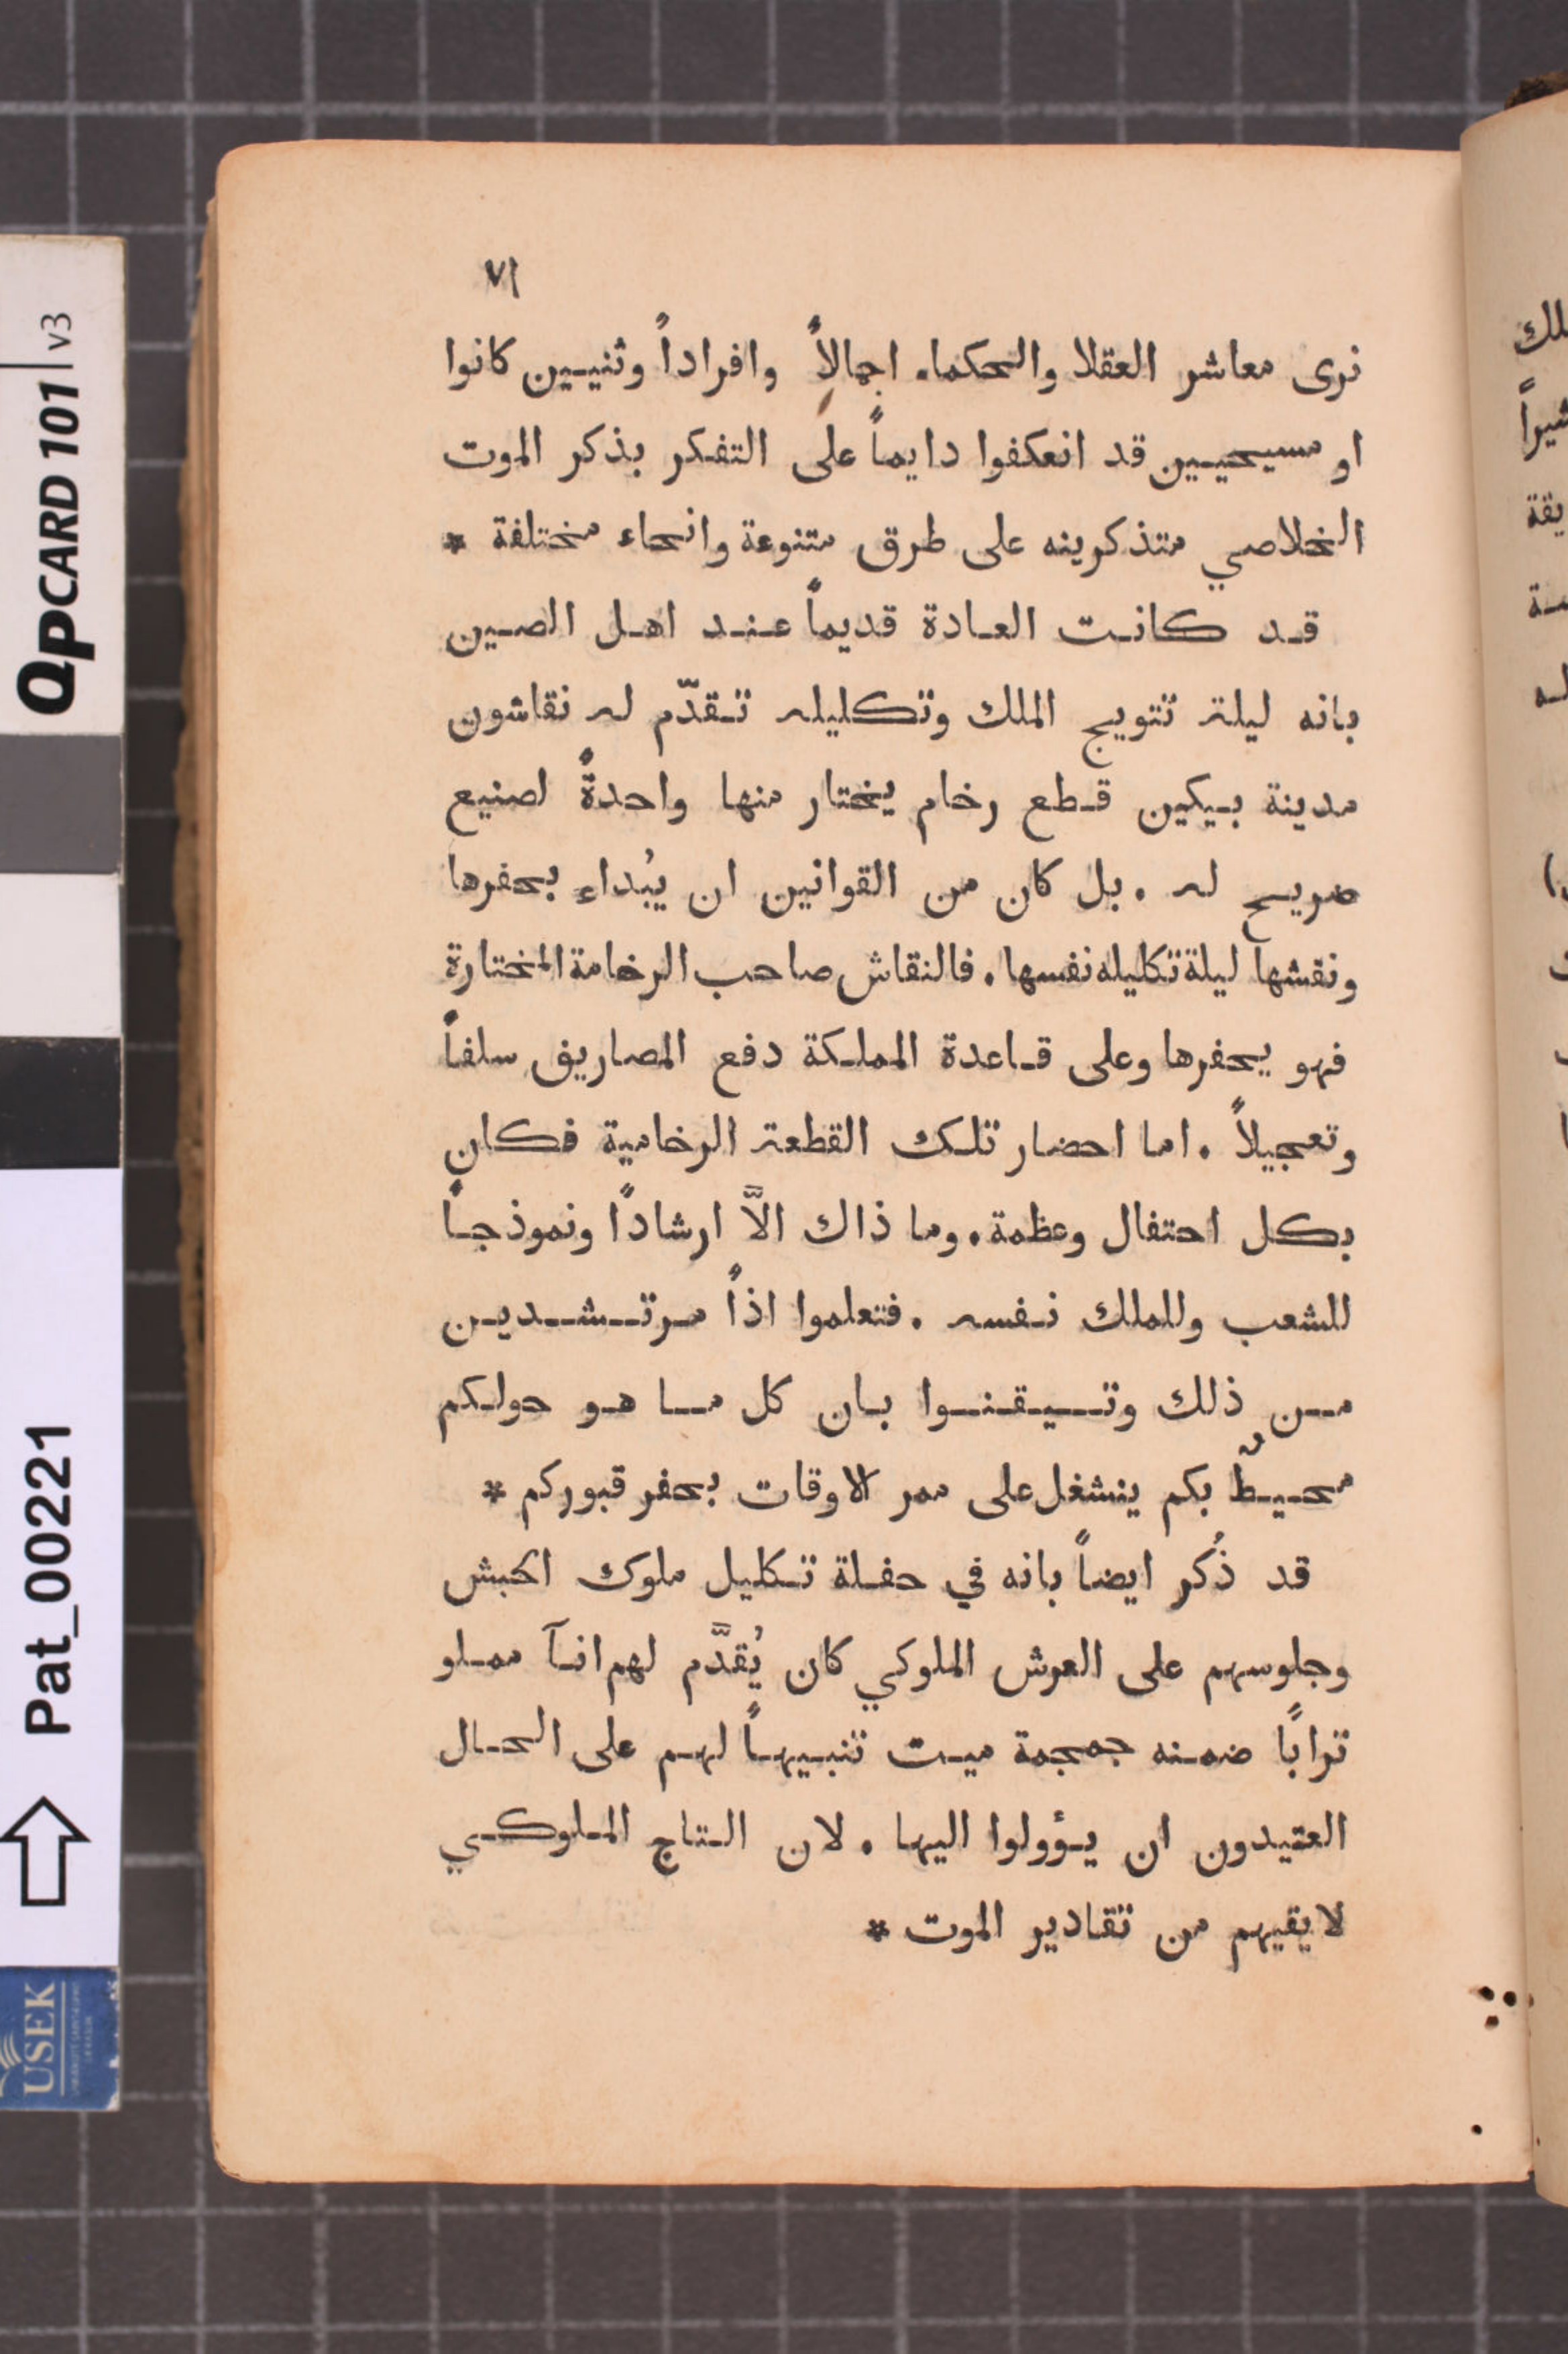 ٧١
نرى معاشر العقلا والحكماء اجمالاً وافراداً وثنيين كانوا
او مسيحيين قد انعكفوا دايماً على التفكر بذكر الموت
الخلاصي متذكرينه على طرق متنوعة وانحاء مختلفة *
قد كانت العادة قديماً عند اهل الصين
بانه ليلة تتويج الملك وتكليله تقدّم له نقاشون
مدينة بيكين قطع رخام يختار منها واحدةً لصنيع
ضريح له . بل كان من القوانين ان يُبداء بحفرها
ونقشها ليلة تكليله نفسها . فالنقاش صاحب الرخامة المختارة
فهو يحفرها وعلى قاعدة المملكة دفع المصاريف سلفاً
وتعجيلاً . اما احضار تلك القطعة الرخامية فكان
بكل احتفال وعظمة . وما ذاك الاَّ ارشاداً ونموذجاً
للشعب وللملك نفسه . فتعلموا اذاً مرتشدين
من ذلك وتيقنوا بان كل ما هو حولكم
محيطٌ بكم ينشغل على ممر الاوقات بحفر قبوركم *
قد ذُكر ايضاً بانه في حفلة تكليل ملوك الحبش
وجلوسهم على العرش الملوكي كان يُقدَّم لهم انآ مملو
تراباً ضمنه جمجمة ميت تنبيهاً لهم على الحال
العتيدون ان يؤولوا اليها . لان التاج الملوكي
لا يقيهم من تقادير الموت *
QPCARD 101 v3
Pat_00221
USEK
لك
ثيراً
يقة